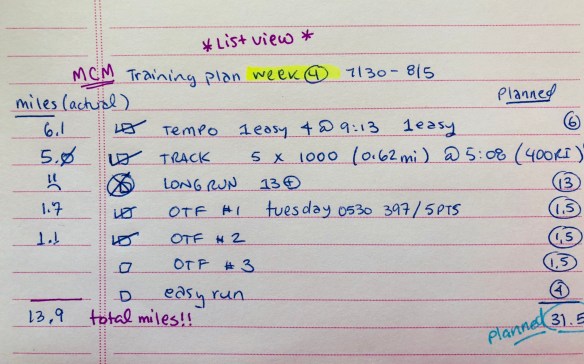 * List view *
MCM Training plan week 4 7/30 - 8/5
miles (actual) Planned
6.1 TEMPO 1easy 4 @ 9:13 1easy 6
5.0 TRACK 5 x 1000 (0.62mi) @ 5:08 (400RI)
LONG RUN 13 13
1.7 OTF #1 tuesday 0530 397/5PTS 1.5
1.1 OTF #2 1.5
OTF #3 1.5
easy run 4
13.9 total miles!! Planned 31.5